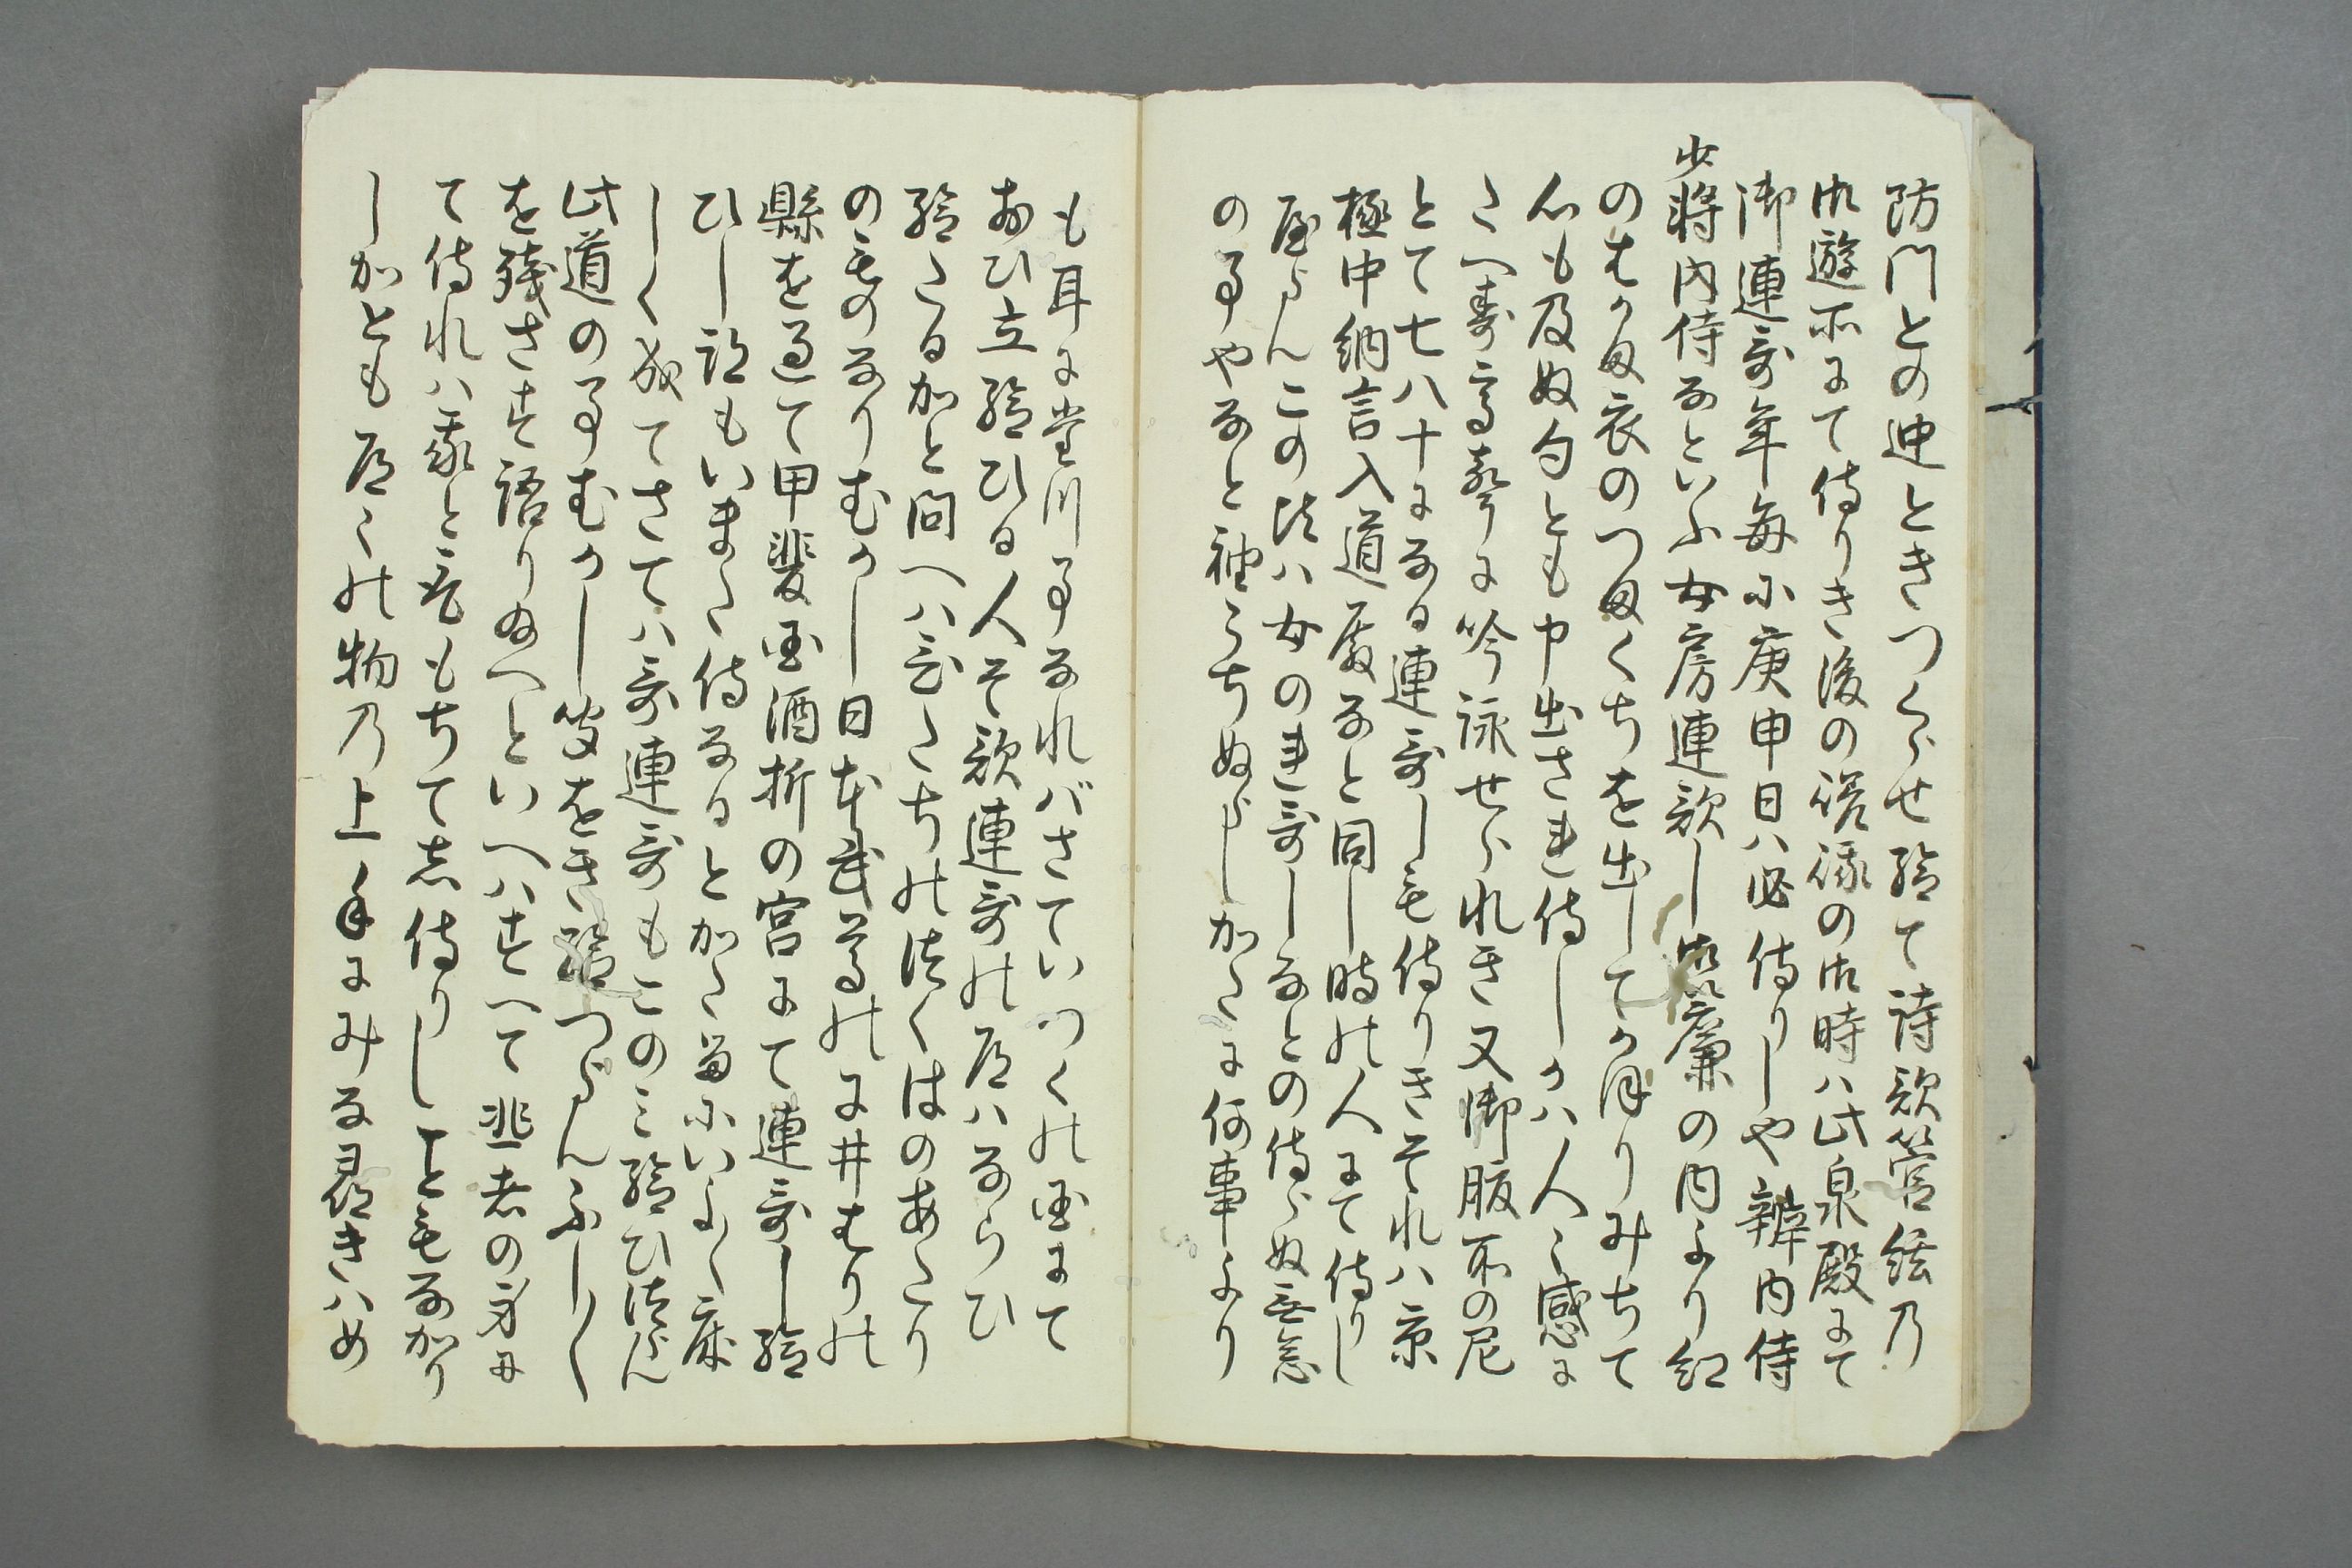 防門との連ときつくらせ給て詩歌管絃乃
御遊所にて侍りき後の嵯峨の御時ハ此泉殿にて
御連哥年毎に庚申日ハ必侍りしや辨内侍
少将内侍なといふ女房連歌し御簾の内より紅
のはかま衣のつまくちを出してかほりみちて
心も及ぬ句とも申出され侍しかハ人々感に
たへす高声に吟詠せられき又御服所の尼
とて七八十になる連哥しも侍りきそれハ京
極中納言入道殿なと同し時の人にて侍りし
やらんこの比ハ女のれ哥しなとの侍らぬ無念
の事やなと袖うちぬらしかたに何事より
も耳に堂川事なれバさていつくの国にて
おひ立給ひる人そ歌連哥の道ハならひ
給たるかと問へハひたちの法くはのあたり
のものなりむかし日本武尊のに井はりの
縣を過て甲斐国酒折の宮にて連哥し給
ひし詞もいまた侍なるとかた田にいやしく
しく成てさてハ哥連哥もこのミ給ひけん
此道の事むかし皆をき給つらんふしく
を残さす語り給へといへハすへて非者の身に
て侍れハ我と哥もちて志侍りしこともなかり
しかとも道々の物乃上手にみな尋きハめ